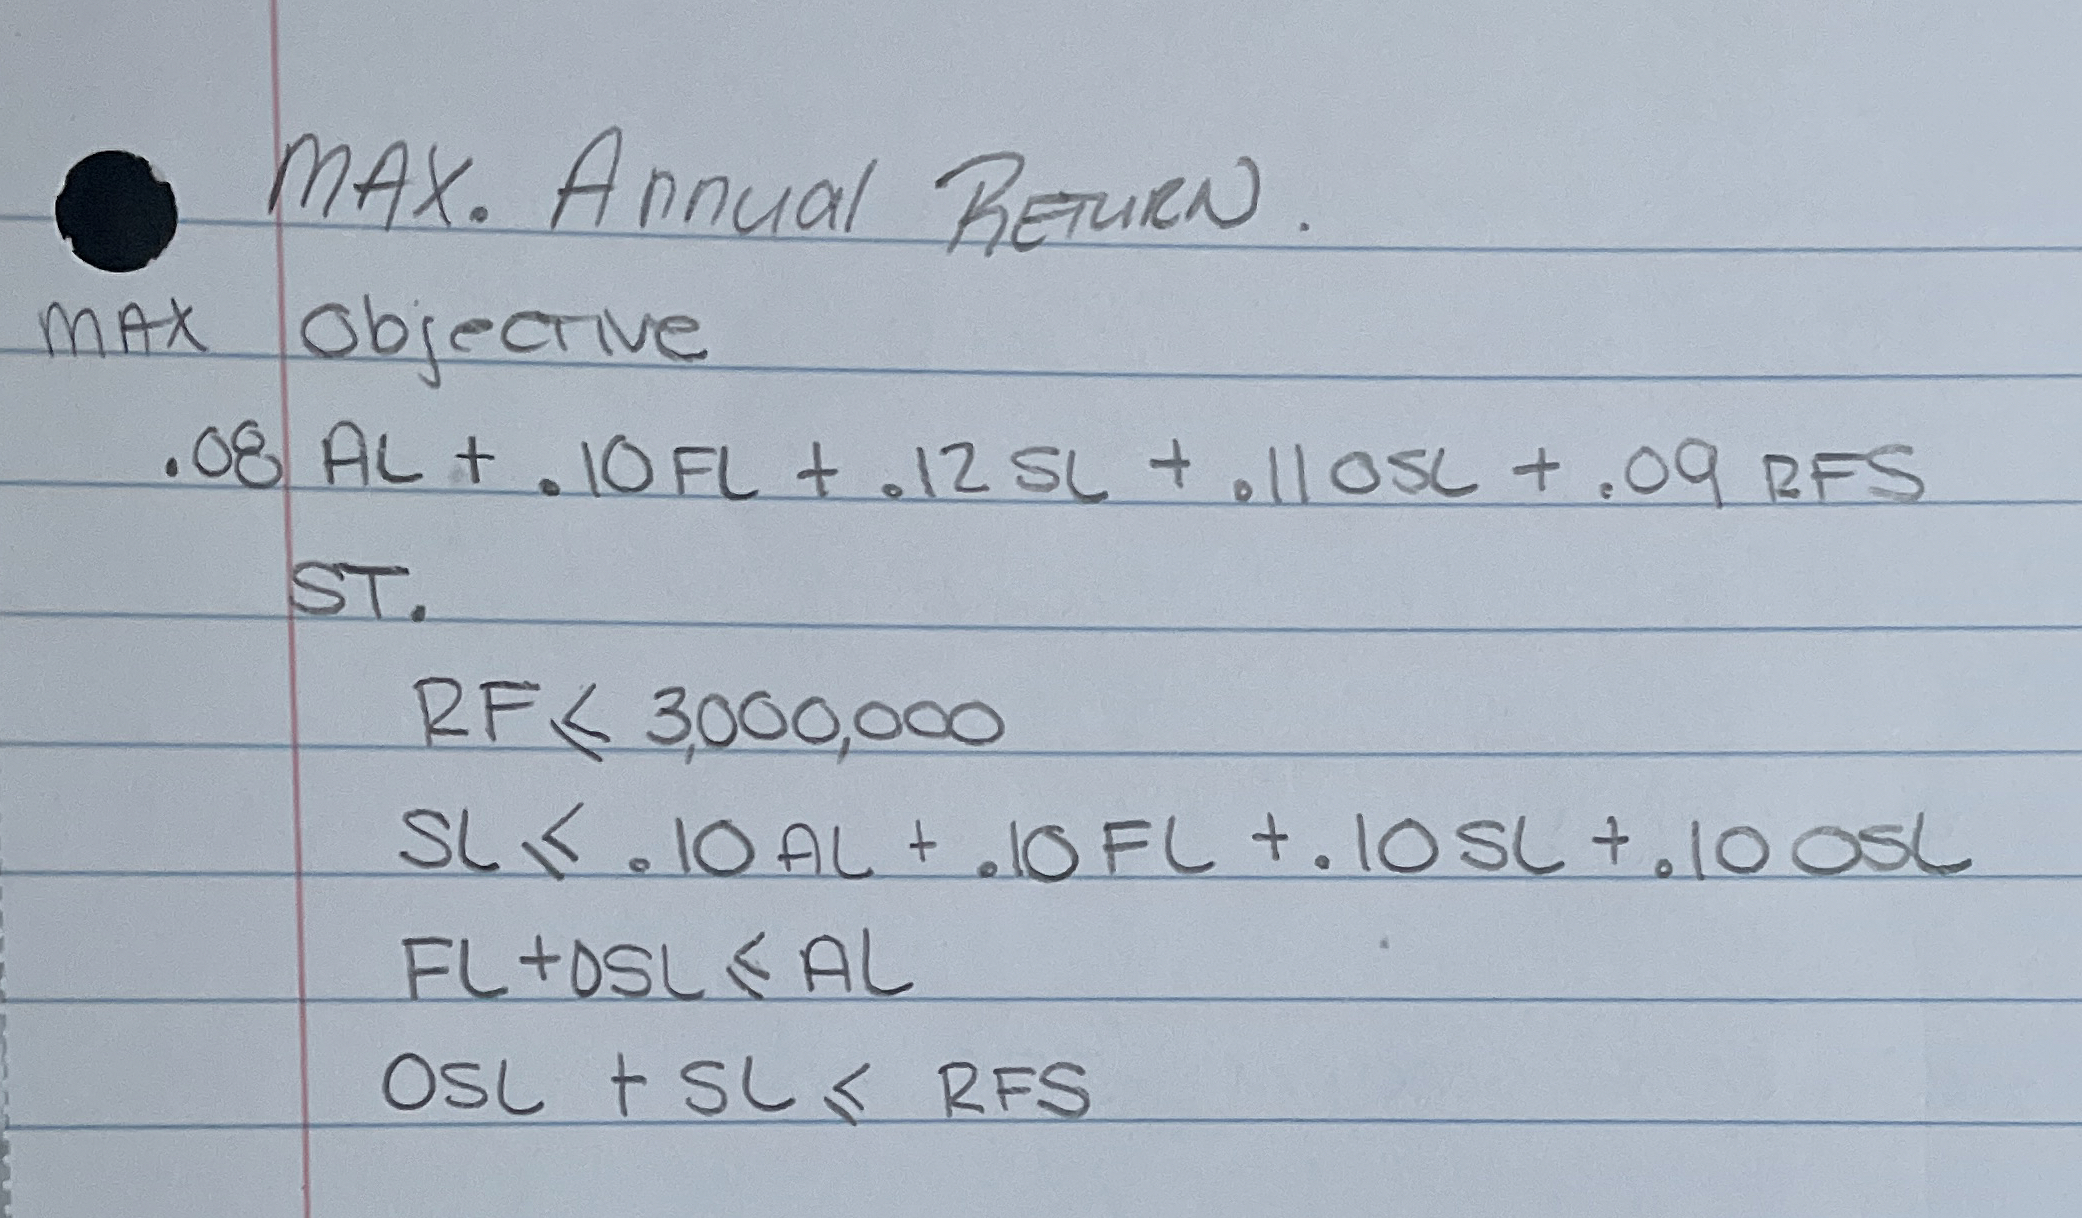 MAX. Annual RETURN.
MAX Objective
.08 AL + .10 FL + .12 SL + .11 OSL + .09 RFS
ST.
RF ≤ 3,000,000
SL ≤ .10 AL + .10 FL + .10 SL + .10 OSL
FL + OSL ≤ AL
OSL + SL ≤ RFS